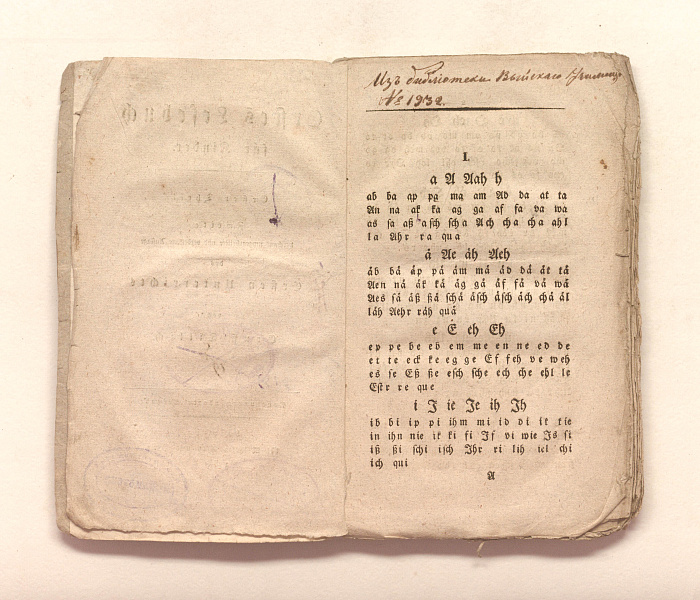 Изъ библіотеки Выйскаго Училища
№ 1932.
I.
a A Aah h
ab ba ap pa ma am Ad da at ta
An na ak ka ag ga af fa va wa
as sa aß asch scha Ach cha cha ahl
la Ahr ra qua
ä Ae äh Aeh
äb bä äp pä äm mä äd dä ät tä
Aen nä äk kä äg gä äf fä vä wä
Aes sä äß ßä schä äsch äsch äch chä äl
läh Aehr räh quä
e É eh Eh
ep pe be eb em me en ne ed de
et te eck ke eg ge Ef feh ve weh
es se Eß ße esch sche ech che ehl le
Estr re que
i I ie Ie ih Ih
ib bi ip pi ihm mi id di it tie
in ihn nie ik ki fi If vi wie Is si
iß ßi schi isch Ihr ri lih iel chi
ich qui
A